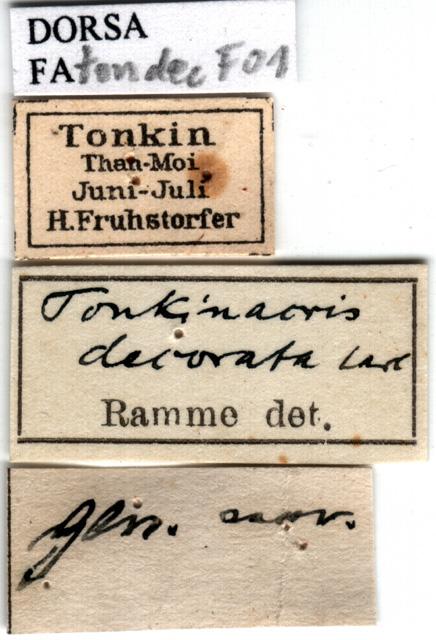 DORSA
FAtondec F01
Tonkin
Than-Moi
Juni-Juli
H.Fruhstorfer
Tonkinacris
decorata Carl
Ramme det.
gen. nov.